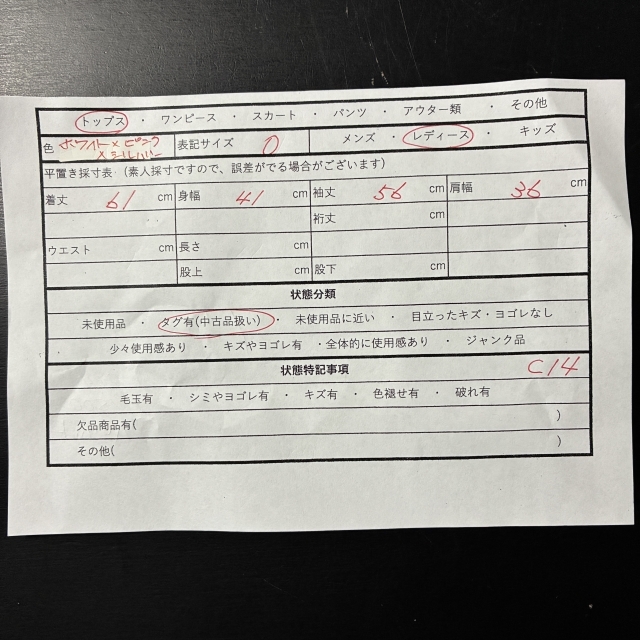 トップス ・ ワンピース ・ スカート ・ パンツ ・ アウター類 ・ その他
色 ホワイト×ピンク ×シルバー 表記サイズ 0 メンズ ・ レディース ・ キッズ
平置き採寸表（素人採寸ですので、誤差がでる場合がございます）
着丈 61 cm 身幅 41 cm 袖丈 56 cm 肩幅 36 cm
裄丈 cm
ウエスト cm 長さ cm
股上 cm 股下 cm
状態分類
未使用品 ・ タグ有(中古品扱い) ・ 未使用品に近い ・ 目立ったキズ・ヨゴレなし
少々使用感あり ・ キズやヨゴレ有 ・全体的に使用感あり ・ ジャンク品
状態特記事項 C14
毛玉有 ・ シミやヨゴレ有 ・ キズ有 ・ 色褪せ有 ・ 破れ有
欠品商品有( )
その他( )